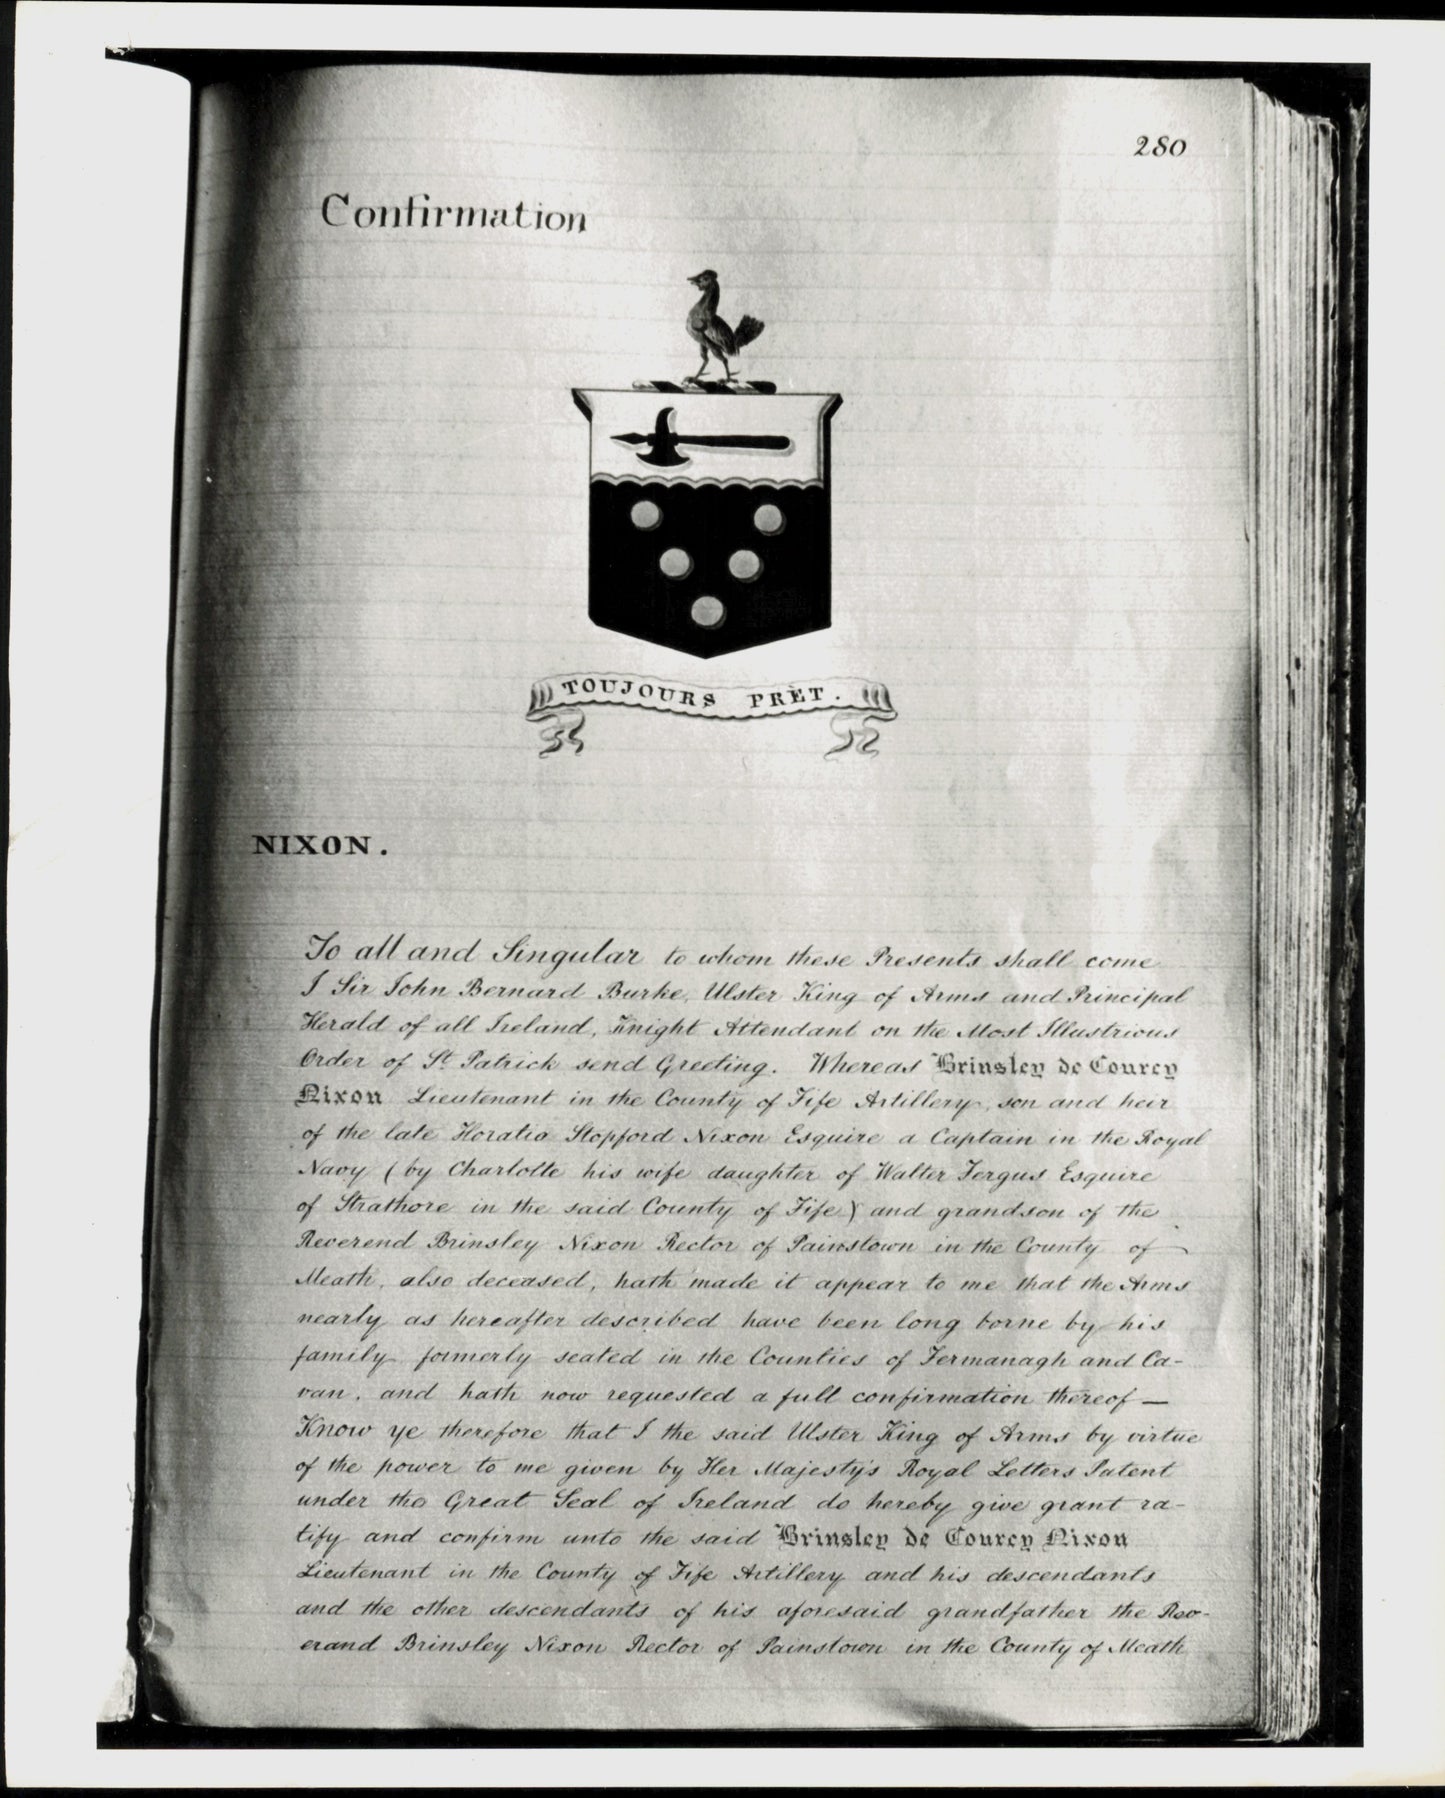 280
Confirmation
TOUJOURS PRÈT.
NIXON.
To all and Singular to whom these Presents shall come
I Sir John Bernard Burke, Ulster King of Arms and Principal
Herald of all Ireland, Knight Attendant on the Most Illustrious
Order of St. Patrick send Greeting. Whereas Brinsley de Courcy
Nixon Lieutenant in the County of Fife Artillery, son and heir
of the late Horatio Stopford Nixon Esquire a Captain in the Royal
Navy (by Charlotte his wife daughter of Walter Fergus Esquire
of Strathore in the said County of Fife) and grandson of the
Reverend Brinsley Nixon Rector of Painstown in the County of
Meath, also deceased, hath made it appear to me that the Arms
nearly as hereafter described have been long borne by his
family formerly seated in the Counties of Fermanagh and Ca-
van, and hath now requested a full confirmation thereof —
Know ye therefore that I the said Ulster King of Arms by virtue
of the power to me given by Her Majesty's Royal Letters Patent
under the Great Seal of Ireland do hereby give grant ra-
tify and confirm unto the said Brinsley de Courcy Nixon
Lieutenant in the County of Fife Artillery and his descendants
and the other descendants of his aforesaid grandfather the Rev-
erand Brinsley Nixon Rector of Painstown in the County of Meath